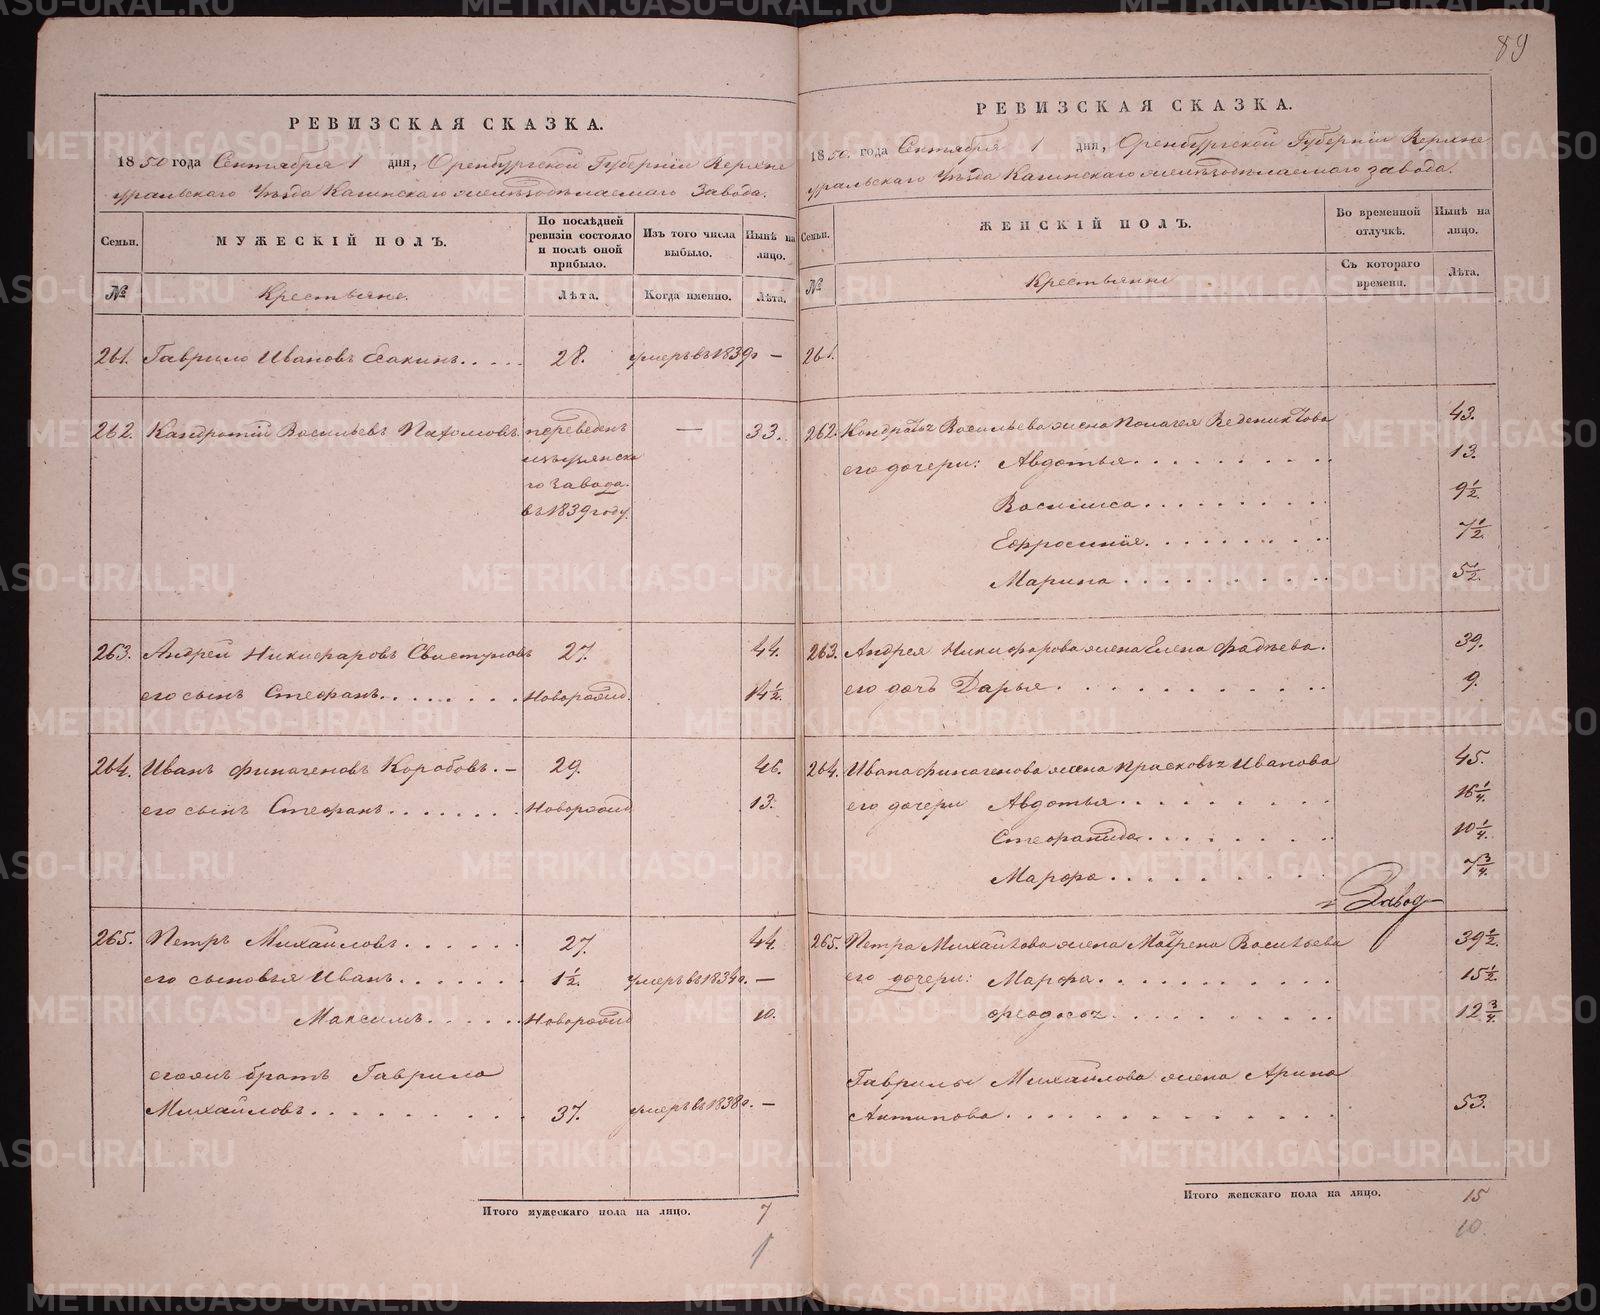 89
РЕВИЗСКАЯ СКАЗКА.
1850 года Сентября 1 дня, Оренбургской Губерніи Верхне
уральскаго Уѣзда Кагинскаго желѣзодѣлаемаго Завода.
Семьи.
МУЖЕСКІЙ ПОЛЪ.
По послѣдней ревизіи состояло и послѣ оной прибыло.
Изъ того числа выбыло.
Нынѣ на лицо.
№
Крестьяне.
Лѣта.
Когда именно.
Лѣта.
261. Гаврило Ивановъ Исакинъ..... 28. умеръ въ 1839г. —
262. Кандратій Васильевъ Пахомовъ. переведенъ — 33.
го завода.
въ 1839 году.
263. Андрей Никифаровъ Свистуновъ 27. 44.
его сынъ Стефанъ....... Новорожд. 14½.
264. Иванъ Финагеновъ Коробовъ. — 29. 46.
его сынъ Стефанъ....... Новорожд 13.
265. Петръ Михайловъ...... 27. 44.
его сыновья Иванъ....... 1½. умеръ въ 1834г. —
Максимъ..... Новорожд 10.
егожъ братъ Гаврила
Михайловъ......... 37. умеръ въ 1838г. —
Итого мужескаго пола на лицо. 7
1
РЕВИЗСКАЯ СКАЗКА.
1850 года Сентября 1 дня, Оренбургской Губерніи Верхне
уральскаго Уѣзда Кагинскаго желѣзодѣлаемаго завода.
Семьи.
ЖЕНСКІЙ ПОЛЪ.
Во временной отлучкѣ.
Нынѣ на лицо.
№
Крестьянки
Съ котораго времени.
Лѣта.
261.
262. Кондратья Васильева жена Пелагея Веденихтова 43.
его дочери: Авдотья......... 13.
Василиса......... 9½.
Ефросинія........ 7½.
Марина......... 5½.
263. Андрея Никифорова жена Елена Фадѣева. 39.
его дочь Дарья.......... 9.
264. Ивана Финагенова жена Прасковья Иванова 45.
его дочери Авдотья......... 16¼.
Стефанида........ 10¼.
Марфа.......... 7¾.
Завод
265. Петра Михайлова жена Матрена Васильева 39½.
его дочери: Марфа.......... 15½.
Феодосья......... 12¾.
Гаврилы Михайлова жена Арина
Антипова............. 53.
Итого женскаго пола на лицо. 15
10.
METRIKI.GASO-URAL.RU